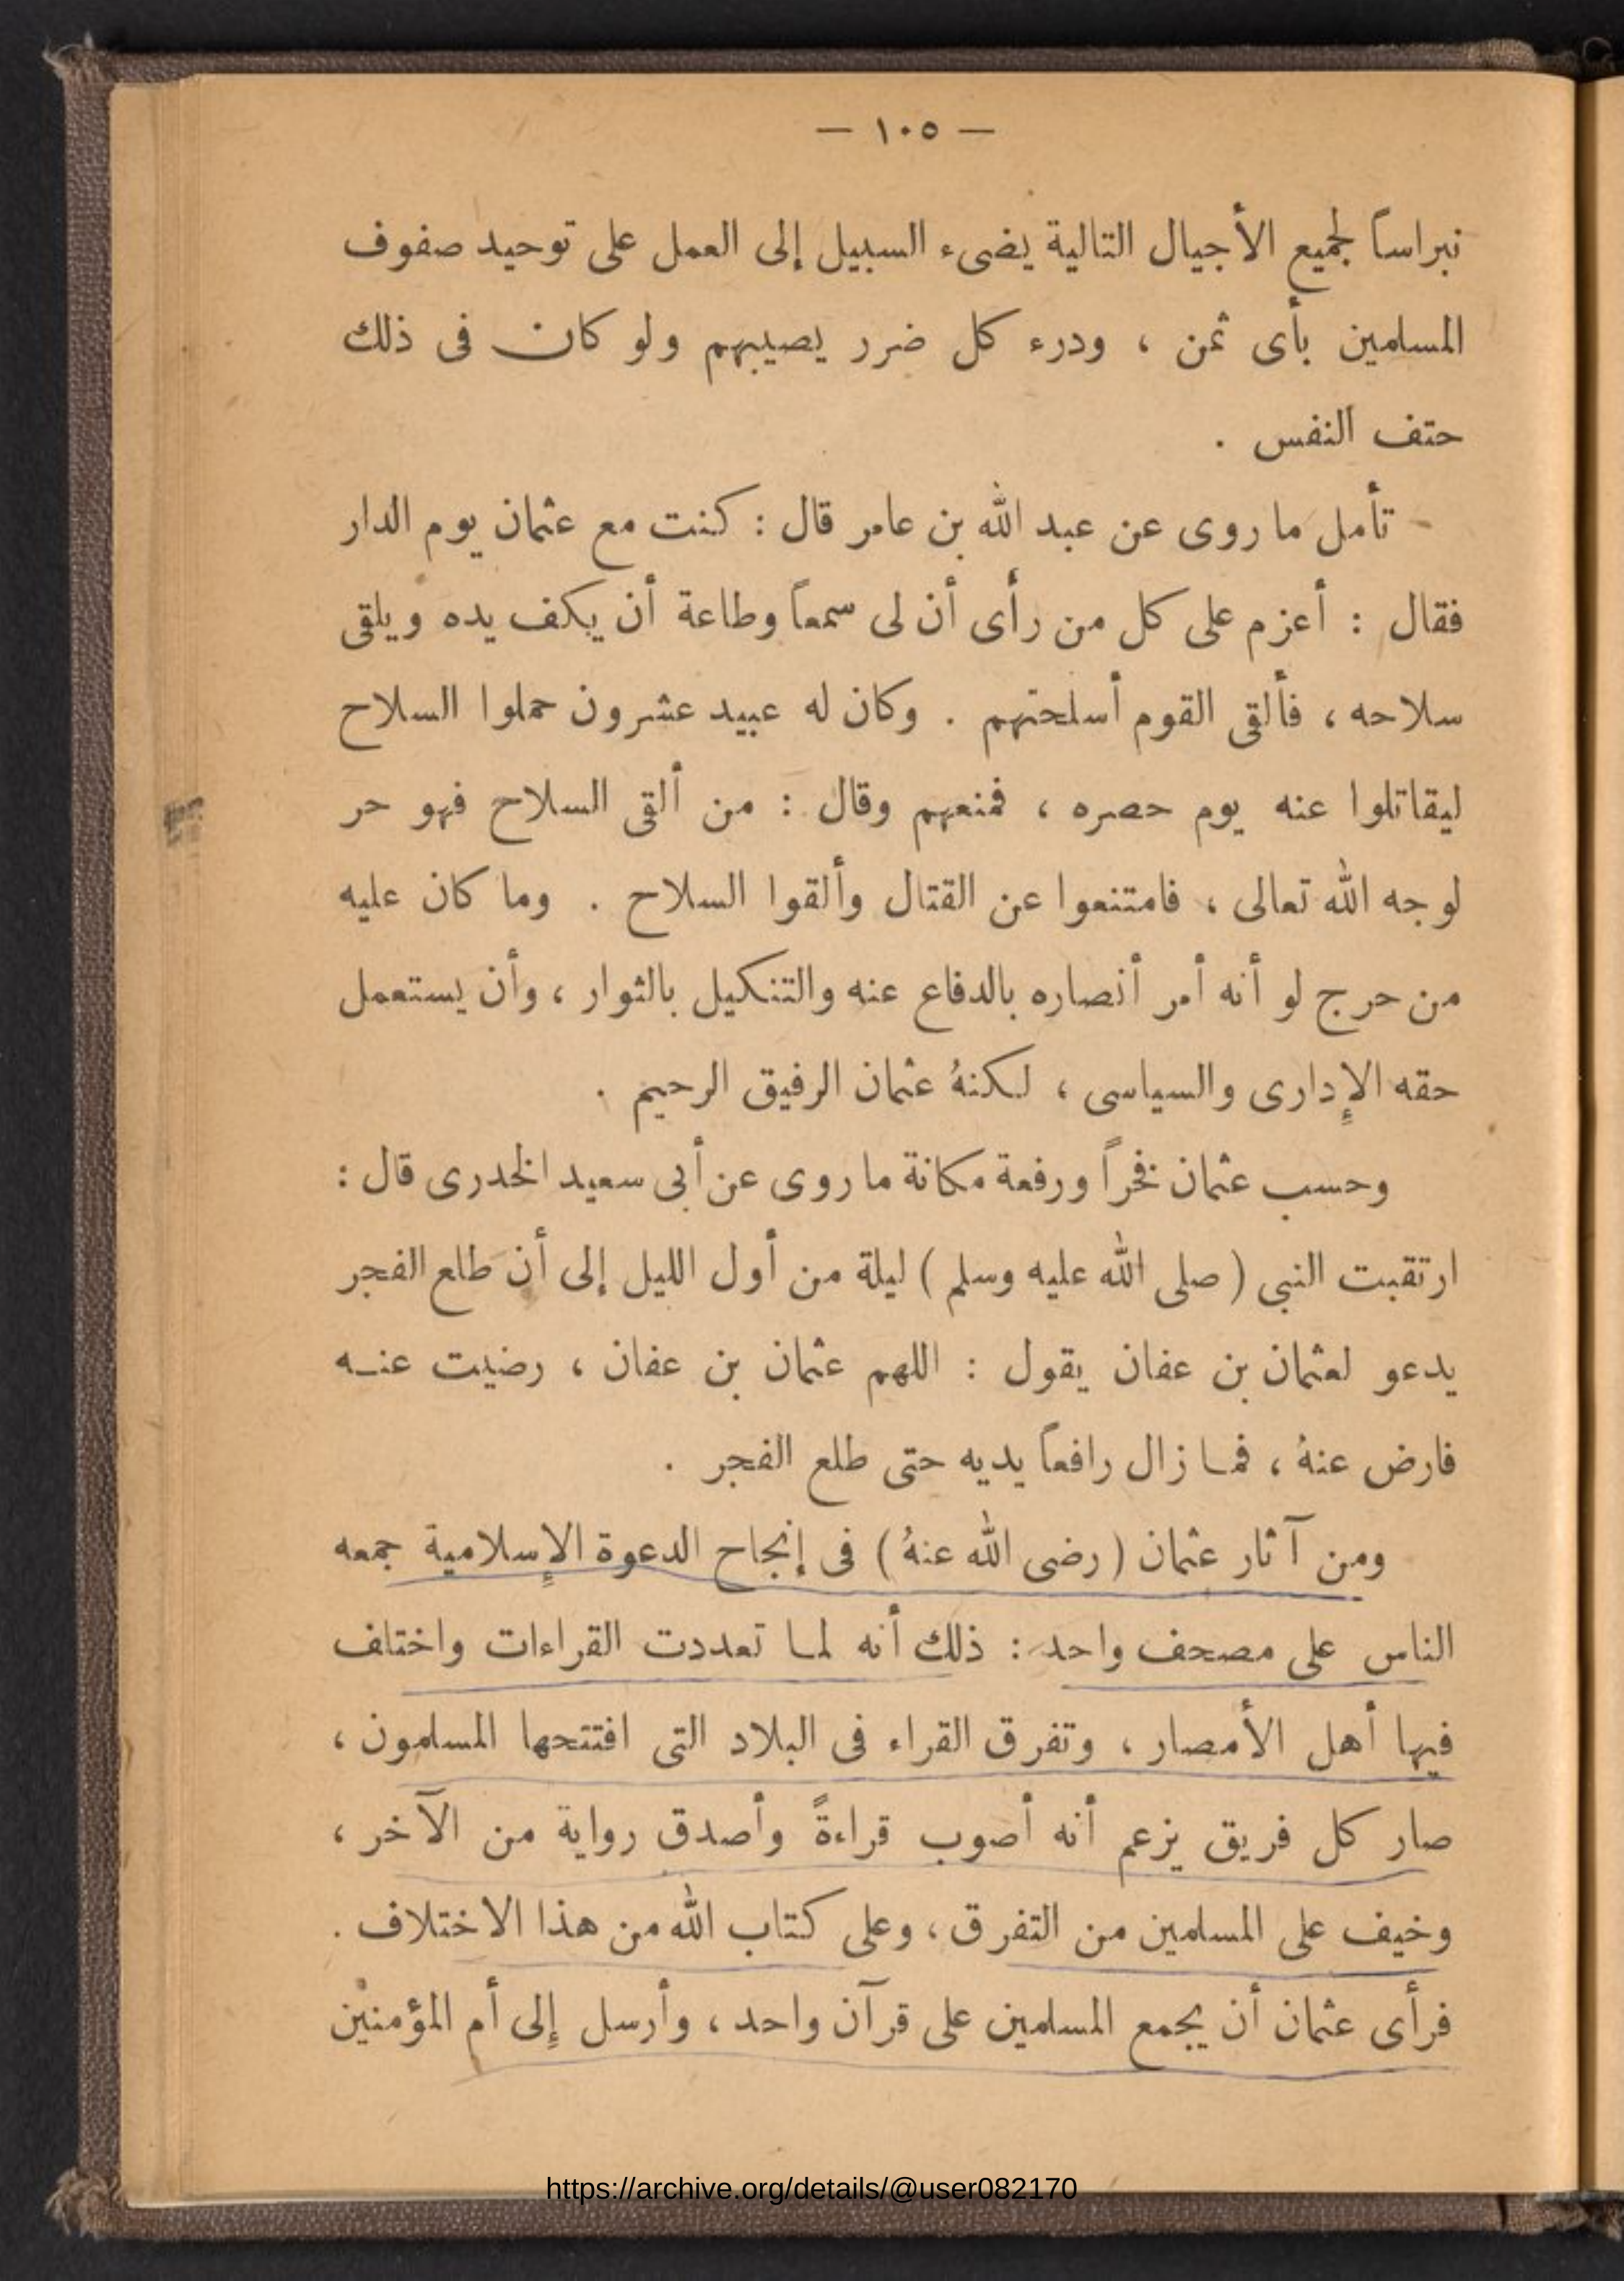 — ١٠٥ —
نبراساً لجميع الأجيال التالية يضىء السبيل إلى العمل على توحيد صفوف
المسلمين بأى ثمن ، ودرء كل ضرر يصيبهم ولو كان فى ذلك
حتف النفس .
تأمل ما روى عن عبد الله بن عامر قال : كنت مع عثمان يوم الدار
فقال : أعزم على كل من رأى أن لى سمعاً وطاعة أن يكف يده ويلقى
سلاحه ، فألقى القوم أسلحتهم . وكان له عبيد عشرون حملوا السلاح
ليقاتلوا عنه يوم حصره ، فمنعهم وقال : من ألقى السلاح فهو حر
لوجه الله تعالى ، فامتنعوا عن القتال وألقوا السلاح . وما كان عليه
من حرج لو أنه أمر أنصاره بالدفاع عنه والتنكيل بالثوار ، وأن يستعمل
حقه الإدارى والسياسى ، لكنهُ عثمان الرفيق الرحيم .
وحسب عثمان فخراً ورفعة مكانة ما روى عن أبى سعيد الخدرى قال :
ارتقبت النبى ( صلى الله عليه وسلم ) ليلة من أول الليل إلى أن طلع الفجر
يدعو لعثمان بن عفان يقول : اللهم عثمان بن عفان ، رضيت عنه
فارض عنهُ ، فما زال رافعاً يديه حتى طلع الفجر .
ومن آثار عثمان ( رضى الله عنهُ ) فى إنجاح الدعوة الإسلامية جمعه
الناس على مصحف واحد : ذلك أنه لما تعددت القراءات واختلف
فيها أهل الأمصار ، وتفرق القراء فى البلاد التى افتتحها المسلمون ،
صار كل فريق يزعم أنه أصوب قراءةً وأصدق رواية من الآخر ،
وخيف على المسلمين من التفرق ، وعلى كتاب الله من هذا الاختلاف .
فرأى عثمان أن يجمع المسلمين على قرآن واحد ، وأرسل إلى أم المؤمنين
https://archive.org/details/@user082170